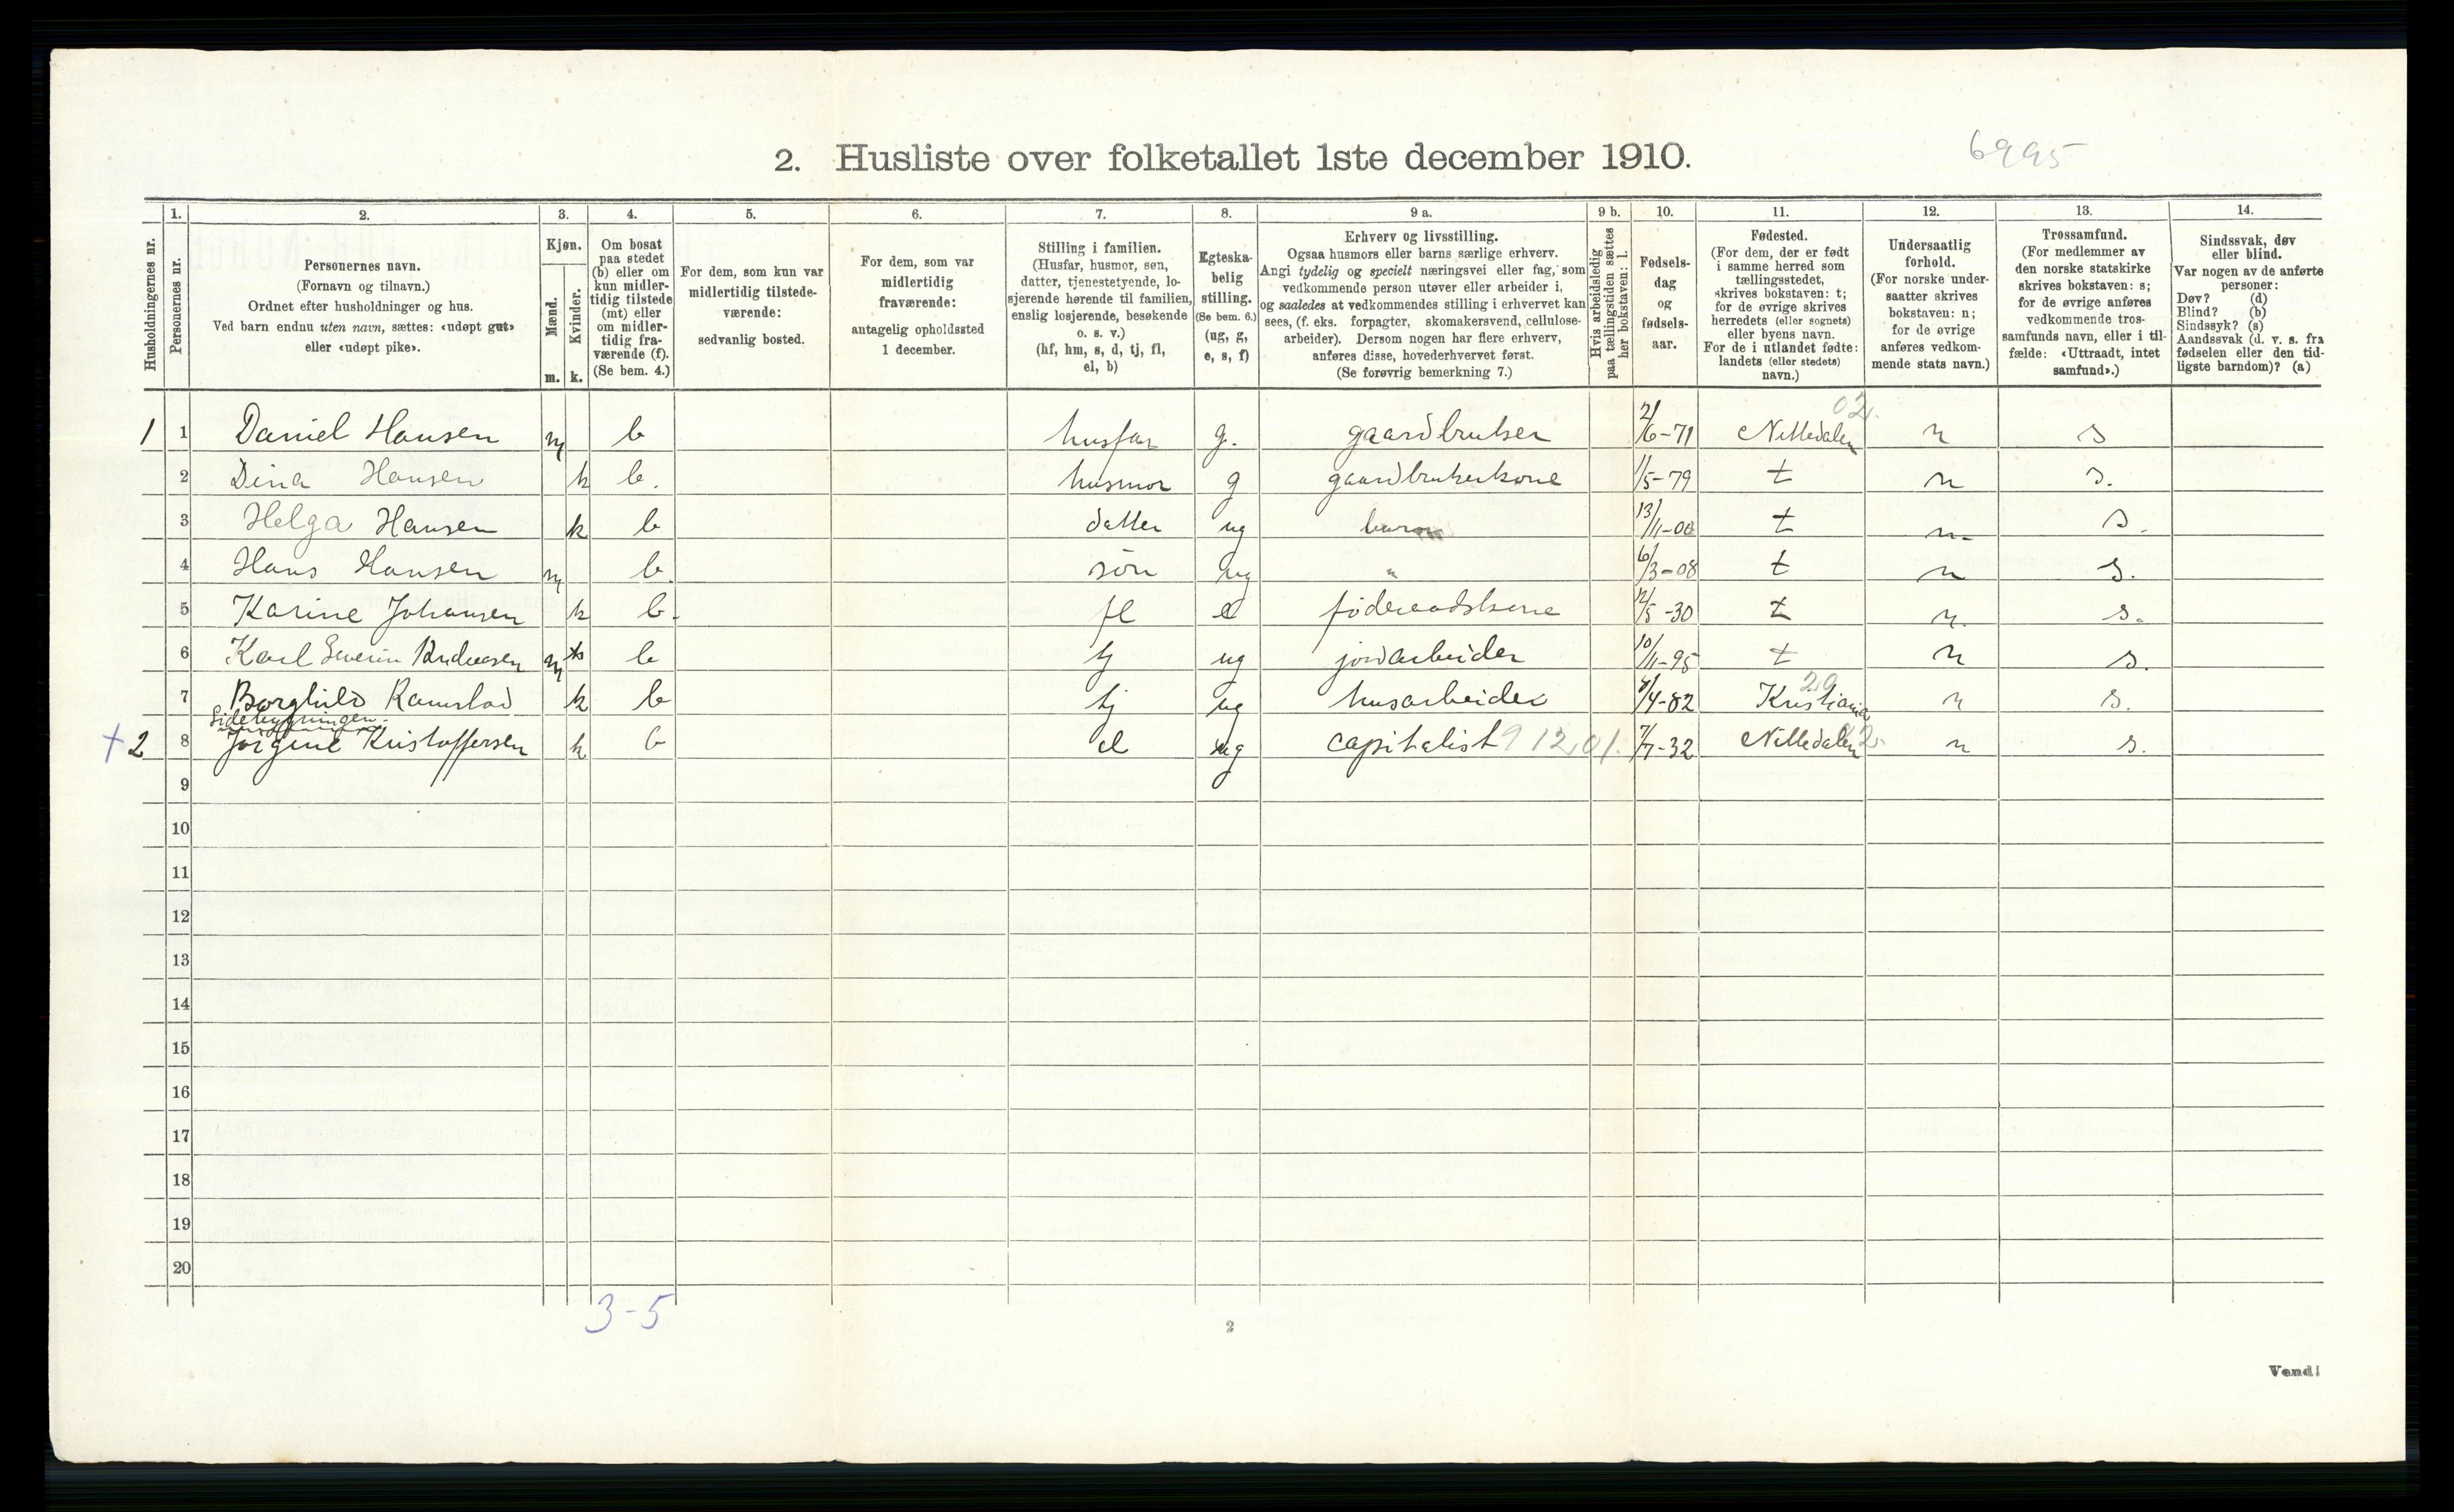 2. Husliste over folketallet 1ste december 1910.
6995
Husholdningernes nr.
1.
Personernes nr.
2.
Personernes navn.
(Fornavn og tilnavn.)
Ordnet efter husholdninger og hus.
Ved barn endnu uten navn, sættes: «udøpt gut»
eller «udøpt pike».
3.
Kjøn.
Mænd.
Kvinder.
m.
k.
4.
Om bosat
paa stedet
(b) eller om
kun midler-
tidig tilstede
(mt) eller
om midler-
tidig fra-
værende (f).
(Se bem. 4.)
5.
For dem, som kun var
midlertidig tilstede-
værende:
sedvanlig bosted.
6.
For dem, som var
midlertidig
fraværende:
antagelig opholdssted
1 december.
7.
Stilling i familien.
(Husfar, husmor, søn,
datter, tjenestetyende, lo-
sjerende hørende til familien,
enslig losjerende, besøkende
o. s. v.)
(hf, hm, s, d, tj, fl,
el, b)
8.
Egteska-
belig
stilling.
(Se bem. 6.)
(ug, g,
e, s, f)
9 a.
Erhverv og livsstilling.
Ogsaa husmors eller barns særlige erhverv.
Angi tydelig og specielt næringsvei eller fag, som
vedkommende person utøver eller arbeider i,
og saaledes at vedkommendes stilling i erhvervet kan
sees, (f. eks. forpagter, skomakersvend, cellulose-
arbeider). Dersom nogen har flere erhverv,
anføres disse, hovederhvervet først.
(Se forøvrig bemerkning 7.)
9 b.
Hvis arbeidsledig
paa tællingstiden sættes
her bokstaven: l.
10.
Fødsels-
dag
og
fødsels-
aar.
11.
Fødested.
(For dem, der er født
i samme herred som
tællingsstedet,
skrives bokstaven: t;
for de øvrige skrives
herredets (eller sognets)
eller byens navn.
For de i utlandet fødte:
landets (eller stedets)
navn.)
12.
Undersaatlig
forhold.
(For norske under-
saatter skrives
bokstaven: n;
for de øvrige
anføres vedkom-
mende stats navn.)
13.
Trossamfund.
(For medlemmer av
den norske statskirke
skrives bokstaven: s;
for de øvrige anføres
vedkommende tros-
samfunds navn, eller i til-
fælde: «Uttraadt, intet
samfund».)
14.
Sindssvak, døv
eller blind.
Var nogen av de anførte
personer:
Døv? (d)
Blind? (b)
Sindssyk? (s)
Aandssvak (d. v. s. fra
fødselen eller den tid-
ligste barndom)? (a)
02.
1 1 Daniel Hansen m b husfar g. gaardbruker 2/6-71 Nittedalen n s
2 Dina Hansen k b. husmor g gaardbrukerkone 1/5-79 t n s.
3 Helga Hansen k b datter ug barn 13/11-00 t n. s.
4 Hans Hansen m b. søn ug " 6/3-08 t n s.
5 Karine Johansen k b. fl e føderaadskone 12/5-30 t n. s.
6 Karl Severin Andersen m b tj ug jordarbeider 10/11-95 t n s.
20
7 Borghild Ramstad k b tj ug husarbeider /4-82 Kristiania n s.
Sidebygningen.
+ 2 8 Jørgine Kristoffersen k b el ug capitalist 9 12 01. 7/7-32 Nittedalen 02. n s.
9
10
11
12
13
14
15
16
17
18
19
20
3-5
2
Vend!